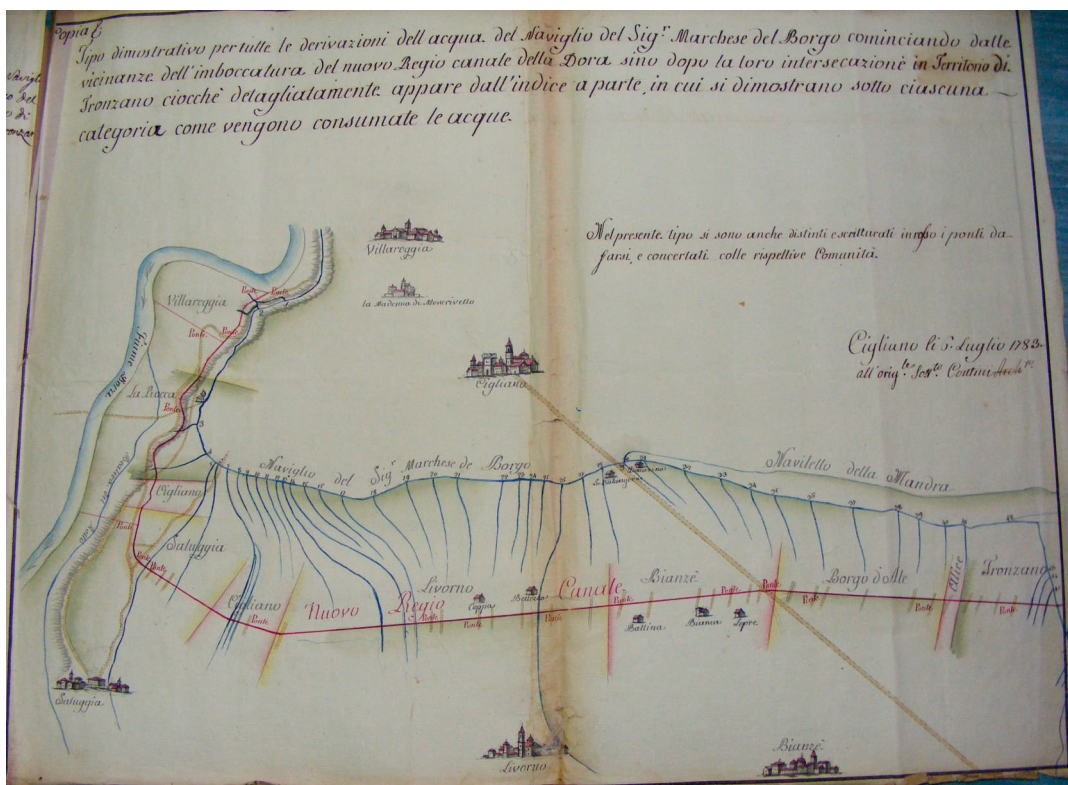 Copia
Tipo dimostrativo per tutte le derivazioni dell'acqua del Naviglio del Sig.r Marchese del Borgo cominciando dalle
vicinanze dell'imboccatura del nuovo Regio canale della Dora sino dopo la loro intersecazione in Territorio di
Tronzano ciocchè detagliatamente appare dall'indice a parte in cui si dimostrano sotto ciascuna
categoria come vengono consumate le acque.
Nel presente tipo si sono anche distinti e scritturati in rosso i ponti da
farsi, e concertati colle rispettive Comunità.
Cigliano li 5. Luglio 1783.
all'orig.le Sott.to Contini
Villareggia
la Madonna di Moncrivello
Villareggia
Ponte
Ponte
Ponte
Ponte
Fiume Dora
La Rocca
Ponte
Cigliano
Naviglio del Sig.r Marchese de Borgo
Naviletto della Mandra
Cigliano
Ponte
Saluggia
Ponte
Ponte
Cigliano
Ponte
Nuovo Regio Canale
Livorno
Ponte
Ponte
Ponte
Bianzè
Ponte
Ponte
Ponte
Borgo d'Ale
Ponte
Alice
Tronzano
Ponte
Battina
Bianca
Lepre
Saluggia
Livorno
Bianzè